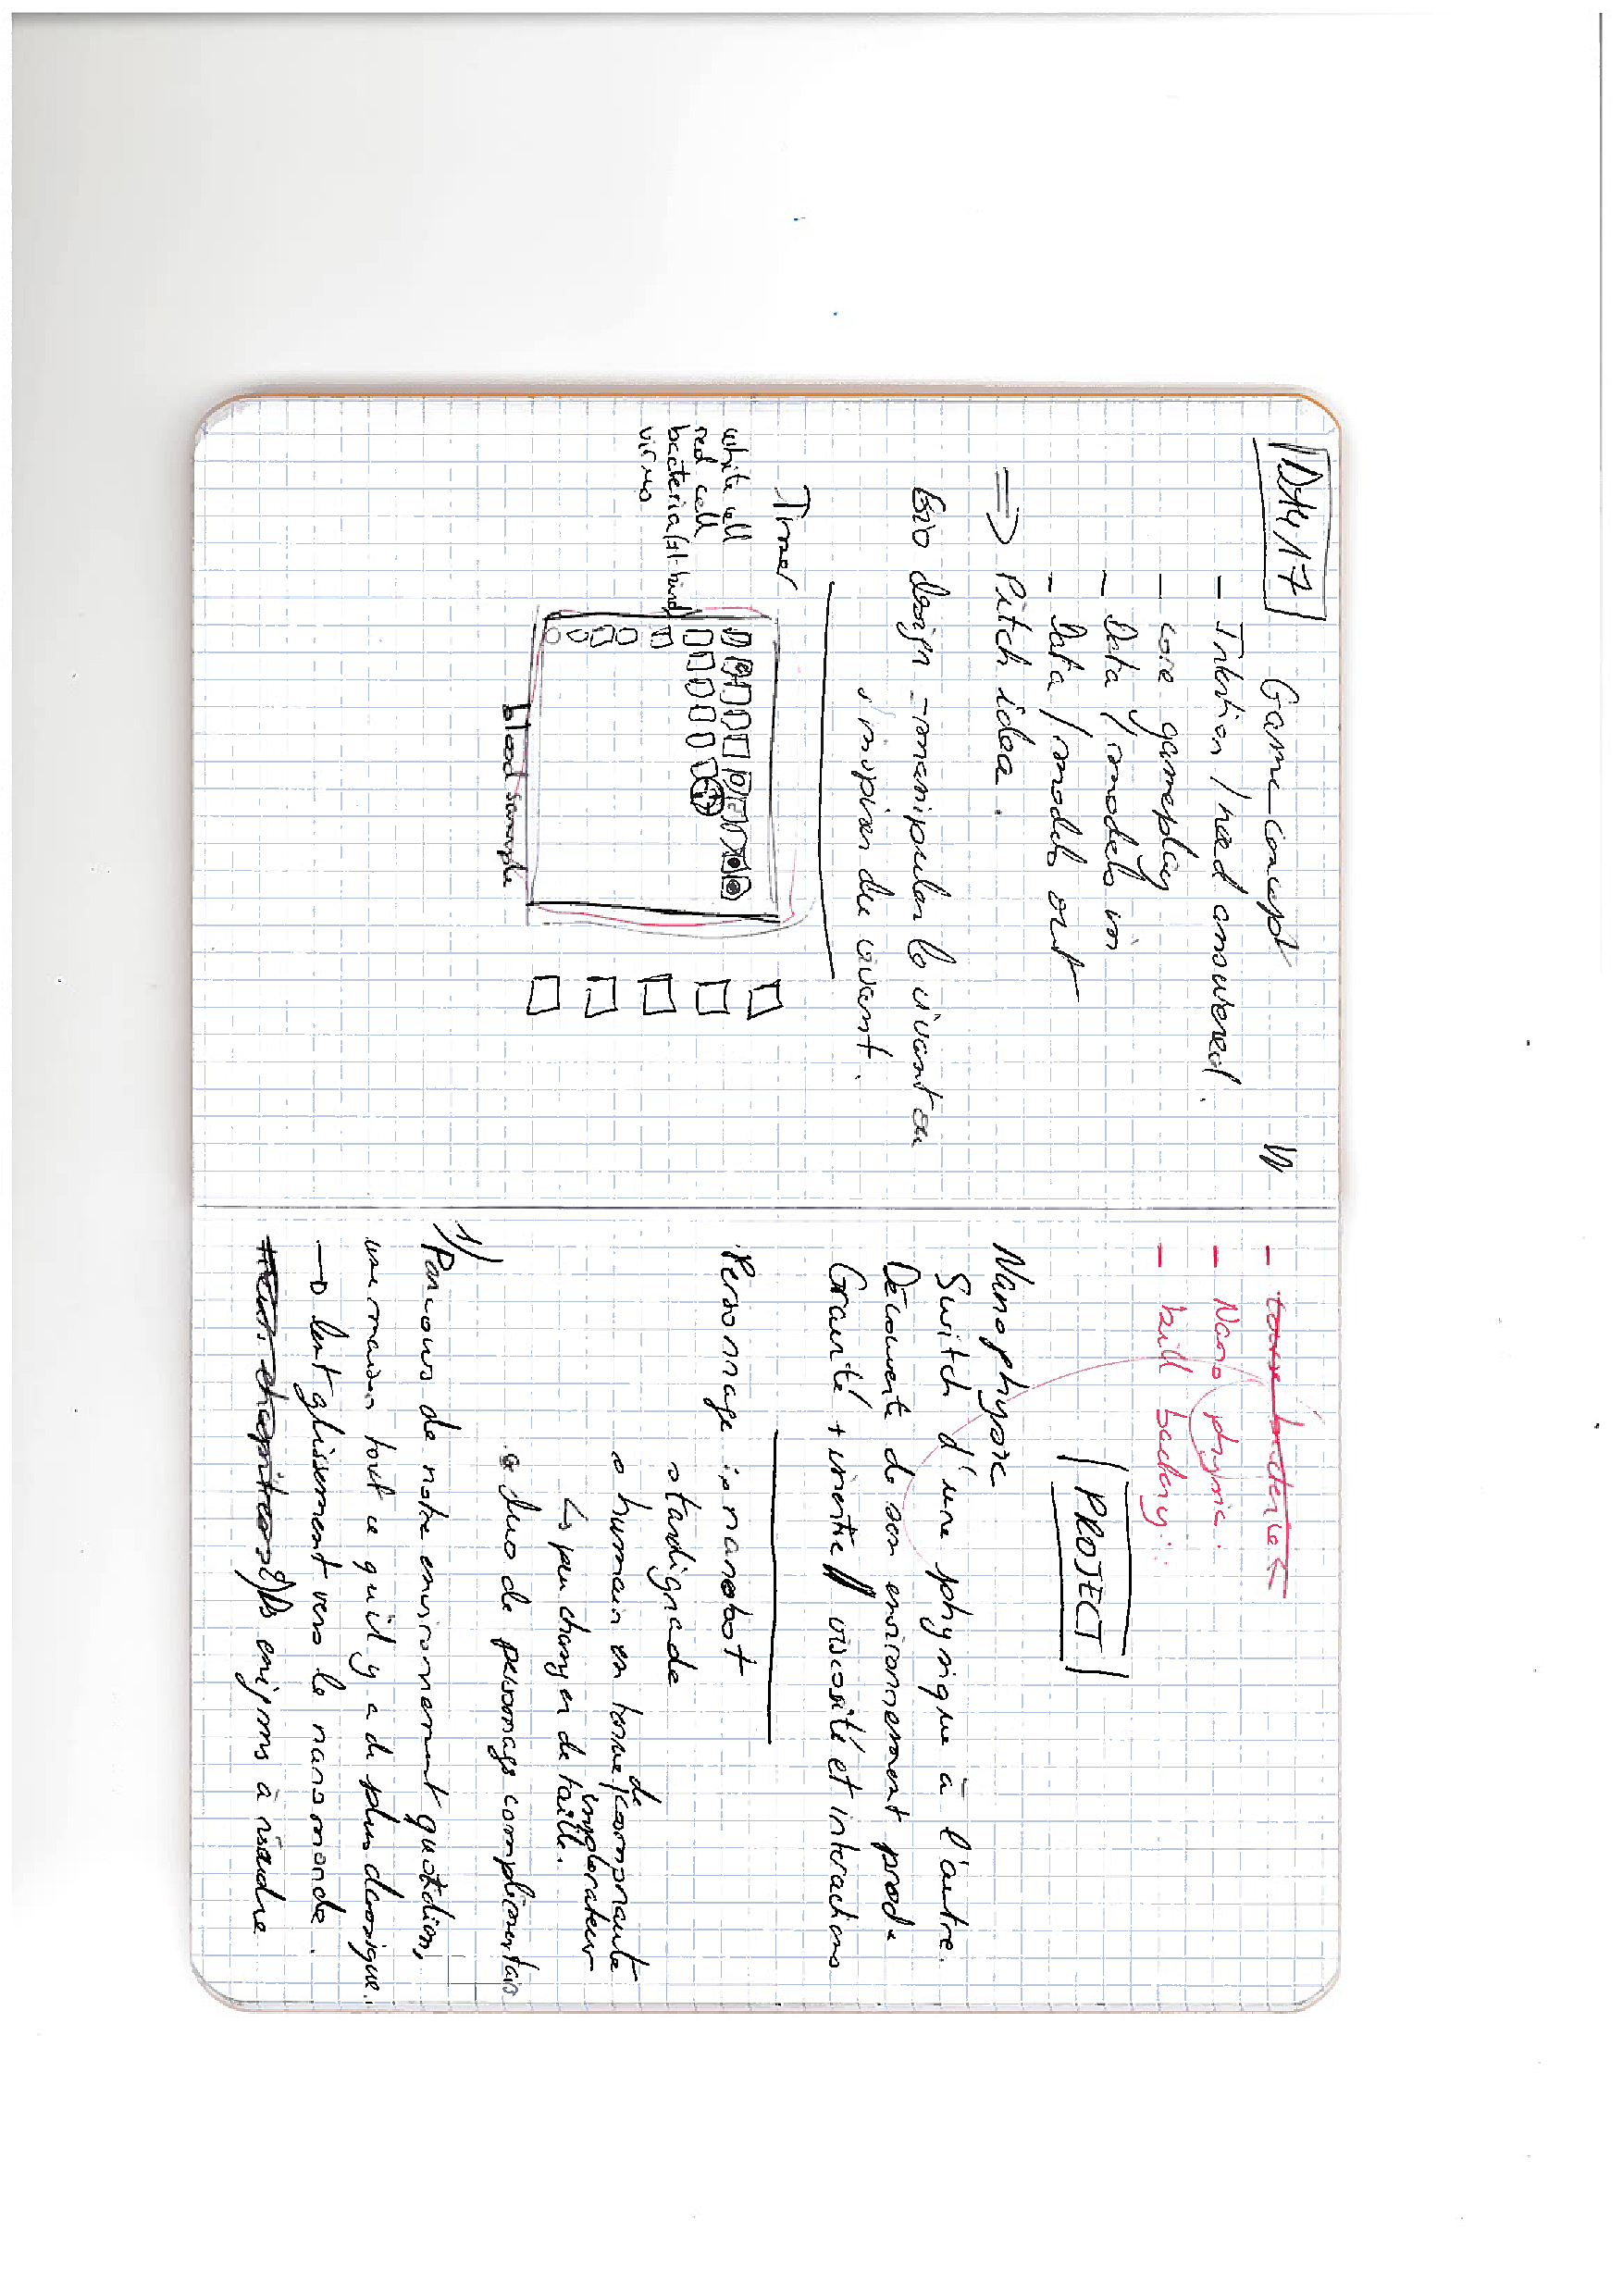 DAY 17
Game concept
- Intention / need answered.
- core gameplay
- Data / models in
- Data / models out
⇒ Pitch idea.
Bio design - manipuler le vivant ou
s'inspirer du vivant.
Timer
white cell
red cell
bacteria
virus
blood sample
- tour bacteria
- Nano physic
- kill bactery
PROJECT
Nanophysic
Switch d'une physique à l'autre.
Découverte de son environnement proche
Gravité + inertie // viscosité et interactions
Personnage : o nanobot
o tardigrade
o humain en tenue / combinaison
de explorateur
↳ peu changer de taille.
o duo de personnage complémentaires
1/ Parcours de notre environnement quotidien,
une maison tout ce qu'il y a de plus classique.
→ lent glissement vers le nanomonde.
2/ Des enigmes à résoudre